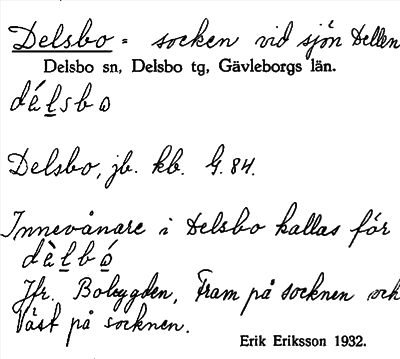 Delsbo = socken vid sjön Dellen
Delsbo sn, Delsbo tg, Gävleborgs län.
délsbo
Delsbo, jb. kb. G. 84.
Innevånare i Delsbo kallas för
dèlbó
Jfr. Bobyggden, Fram på socknen och
Väst på socknen.
Erik Eriksson 1932.